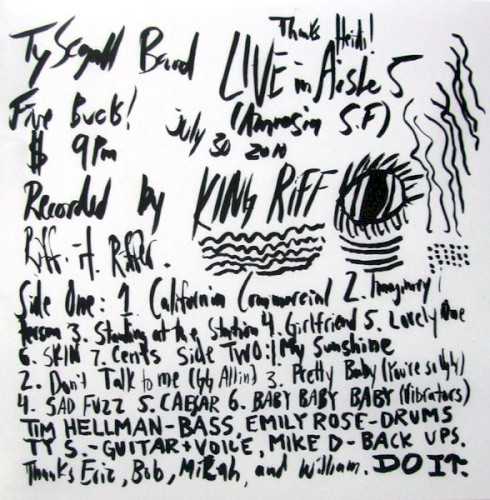 Thanks Heidi!
Ty Segall Band LIVE in Aisle 5
Five Buck! July 30 2010 (Amnesia S.F)
$ 9pm
Recorded by KING RIFF
Riff. it. Riffer.
Side One: 1. California Commercial 2. Imaginary
Person 3. Standing at the Station 4. Girlfriend 5. Lovely One
6. SKIN 7. Cents Side TWO: 1. My Sunshine
2. Don't Talk to me (GG Allin) 3. Pretty Baby (You're so Ugly)
4. SAD FUZZ 5. CAESAR 6. BABY BABY BABY (Vibrators)
TIM HELLMAN-BASS, EMILY ROSE-DRUMS
TY S.-GUITAR+VOICE, MIKE D-BACK UPS.
Thanks Eric, Bob, Mikah, and William. DO IT.